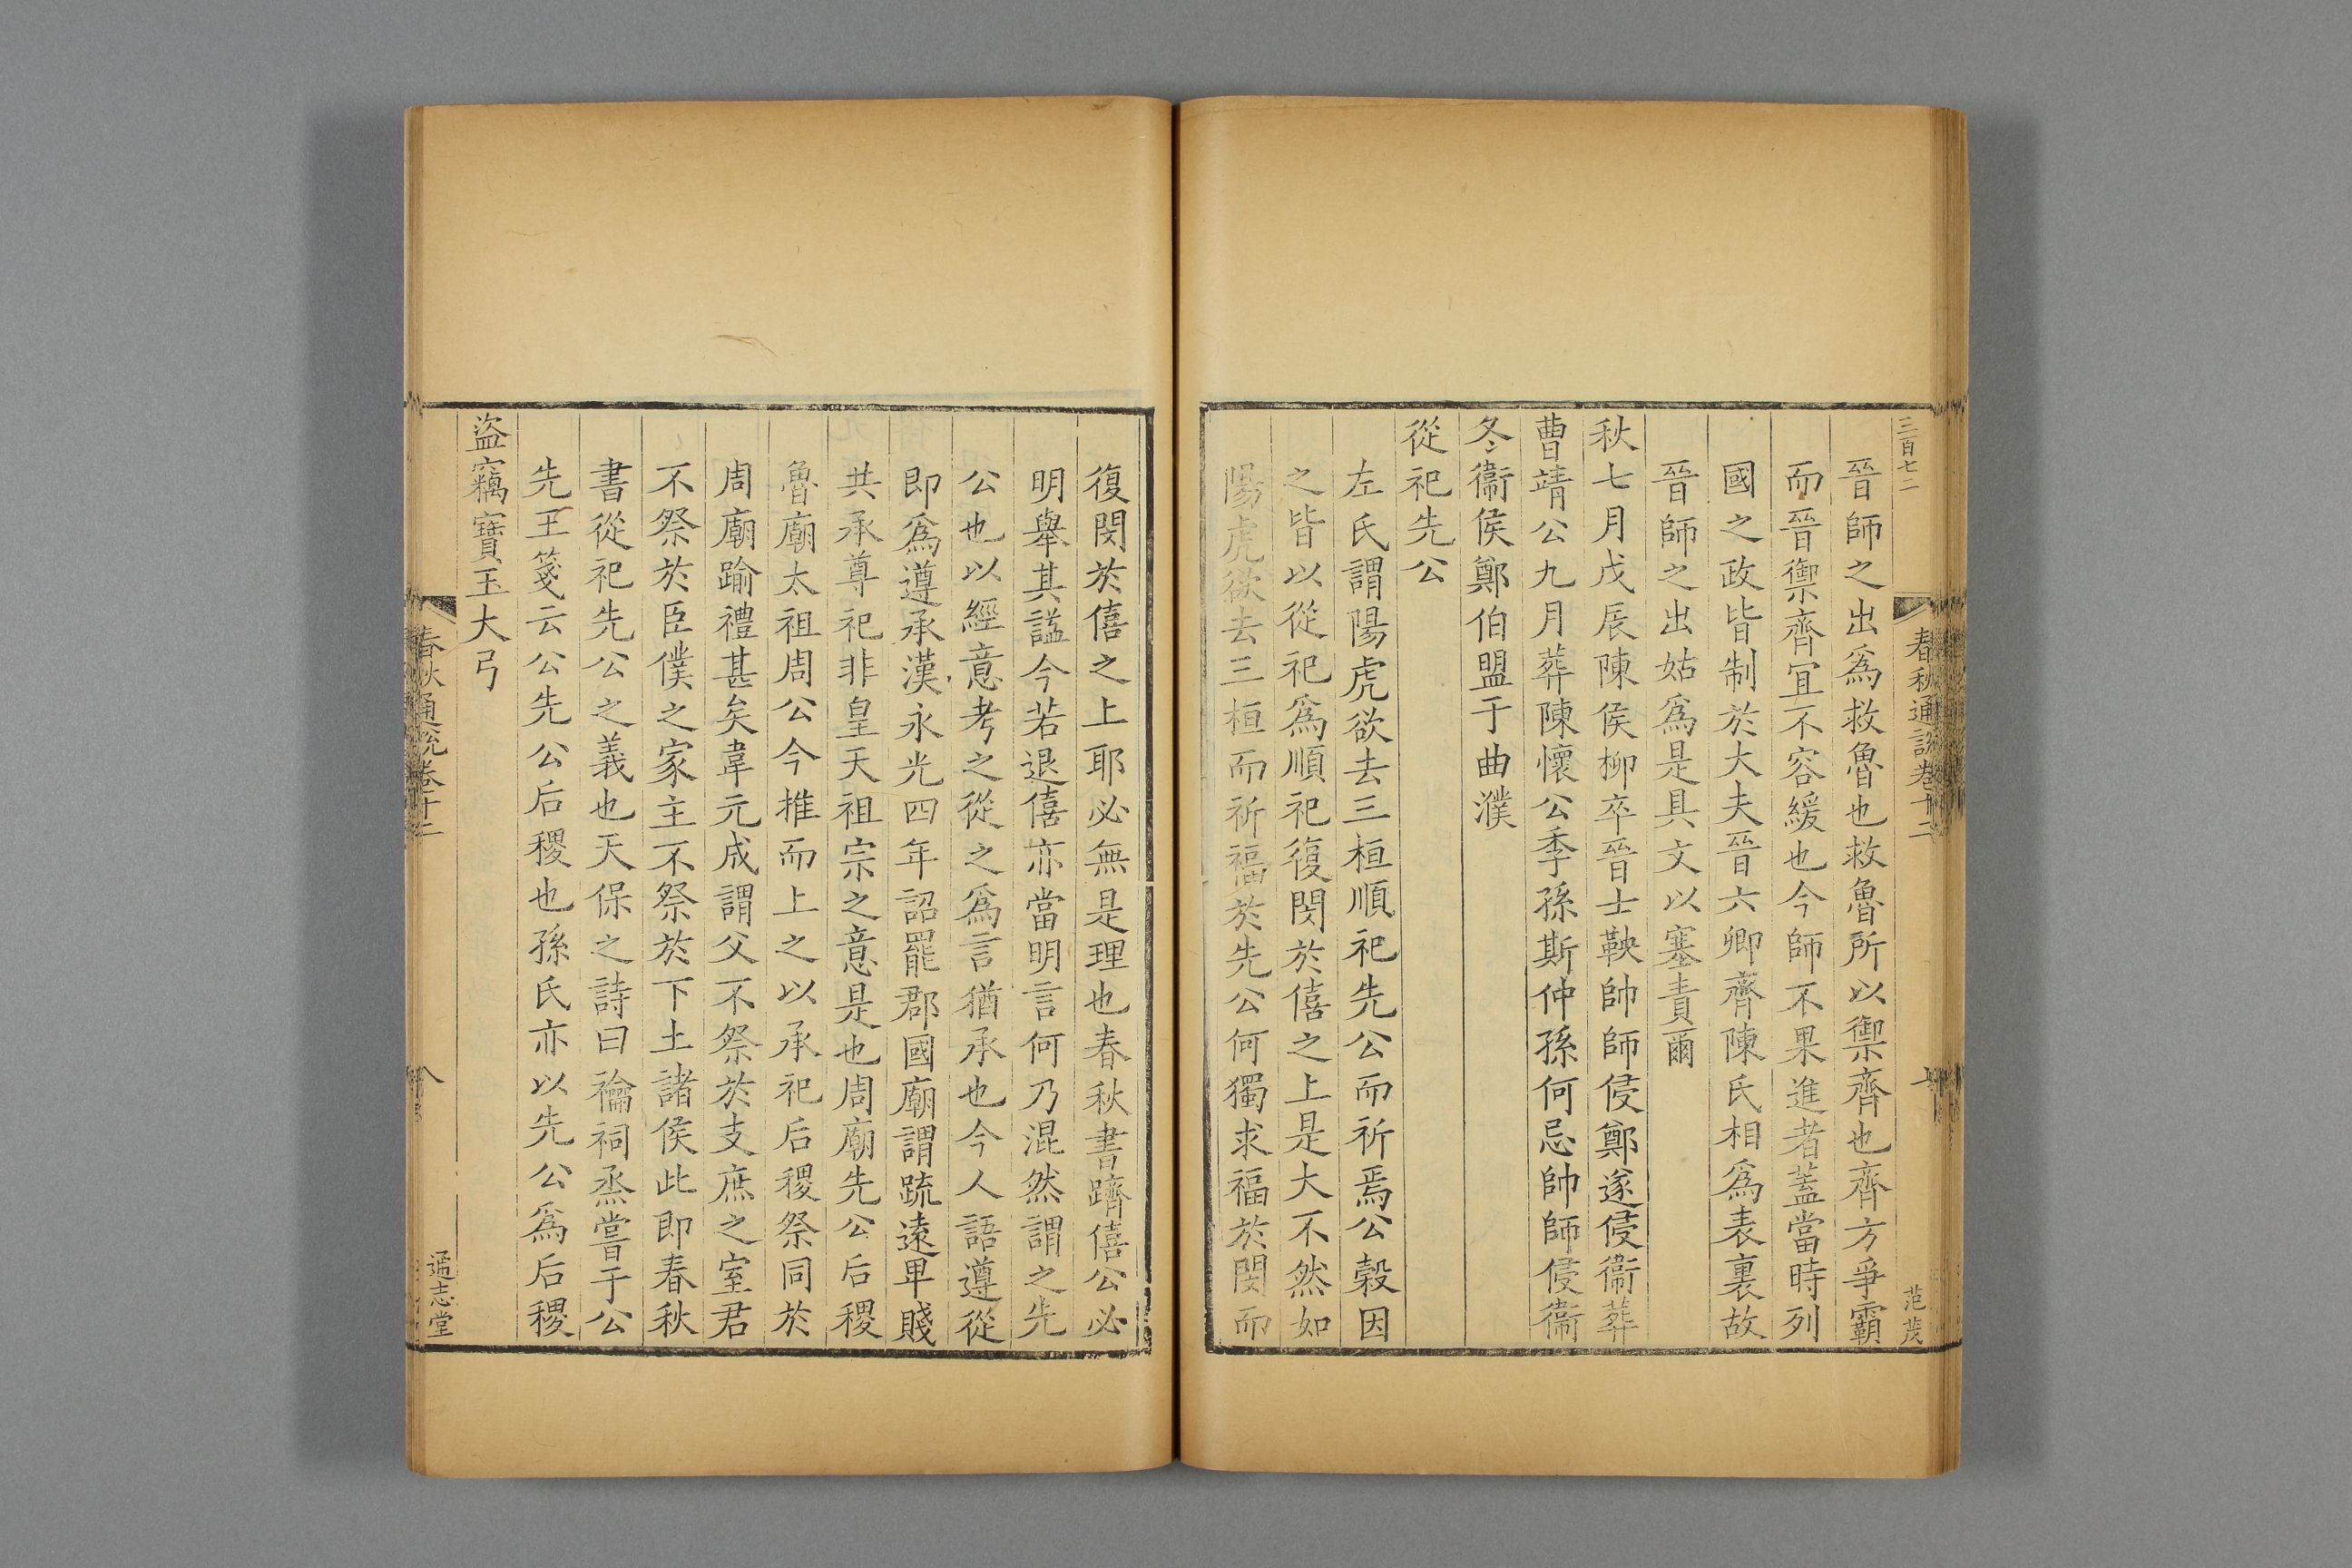 三百七二
春秋通說卷十二
范茂
晉師之出爲救魯也救魯所以禦齊也齊方爭霸
而晉禦齊宜不容緩也今師不果進者蓋當時列
國之政皆制於大夫晉六卿齊陳氏相爲表裏故
晉師之出姑爲是具文以塞責爾
秋七月戊辰陳侯柳卒晉士鞅帥師侵鄭遂侵衞葬
曹靖公九月葬陳懷公季孫斯仲孫何忌帥師侵衞
冬衞侯鄭伯盟于曲濮
從祀先公
左氏謂陽虎欲去三桓順祀先公而祈焉公穀因
之皆以從祀爲順祀復閔於僖之上是大不然如
陽虎欲去三桓而祈福於先公何獨求福於閔而
復閔於僖之上耶必無是理也春秋書躋僖公必
明舉其謚今若退僖亦當明言何乃混然謂之先
公也以經意考之從之爲言猶承也今人語遵從
即爲遵承漢永光四年詔罷郡國廟謂疏遠卑賤
共承尊祀非皇天祖宗之意是也周廟先公后稷
魯廟太祖周公今推而上之以承祀后稷祭同於
周廟踰禮甚矣韋元成謂父不祭於支庶之室君
不祭於臣僕之家主不祭於下土諸侯此即春秋
書從祀先公之義也天保之詩曰禴祠烝嘗于公
先王箋云公先公后稷也孫氏亦以先公爲后稷
盜竊寶玉大弓
春秋通說卷十二
八
通志堂